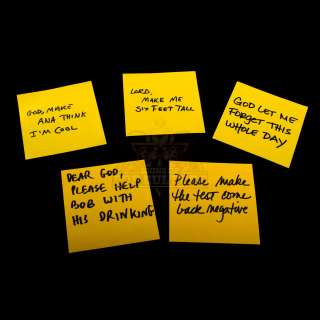 GOD, MAKE
ANA THINK
I'M COOL
LORD,
MAKE ME
SIX FEET TALL
GOD LET ME
FORGET THIS
WHOLE DAY
DEAR GOD,
PLEASE HELP
BOB WITH
HIS DRINKING
Please make
the test come
back negative